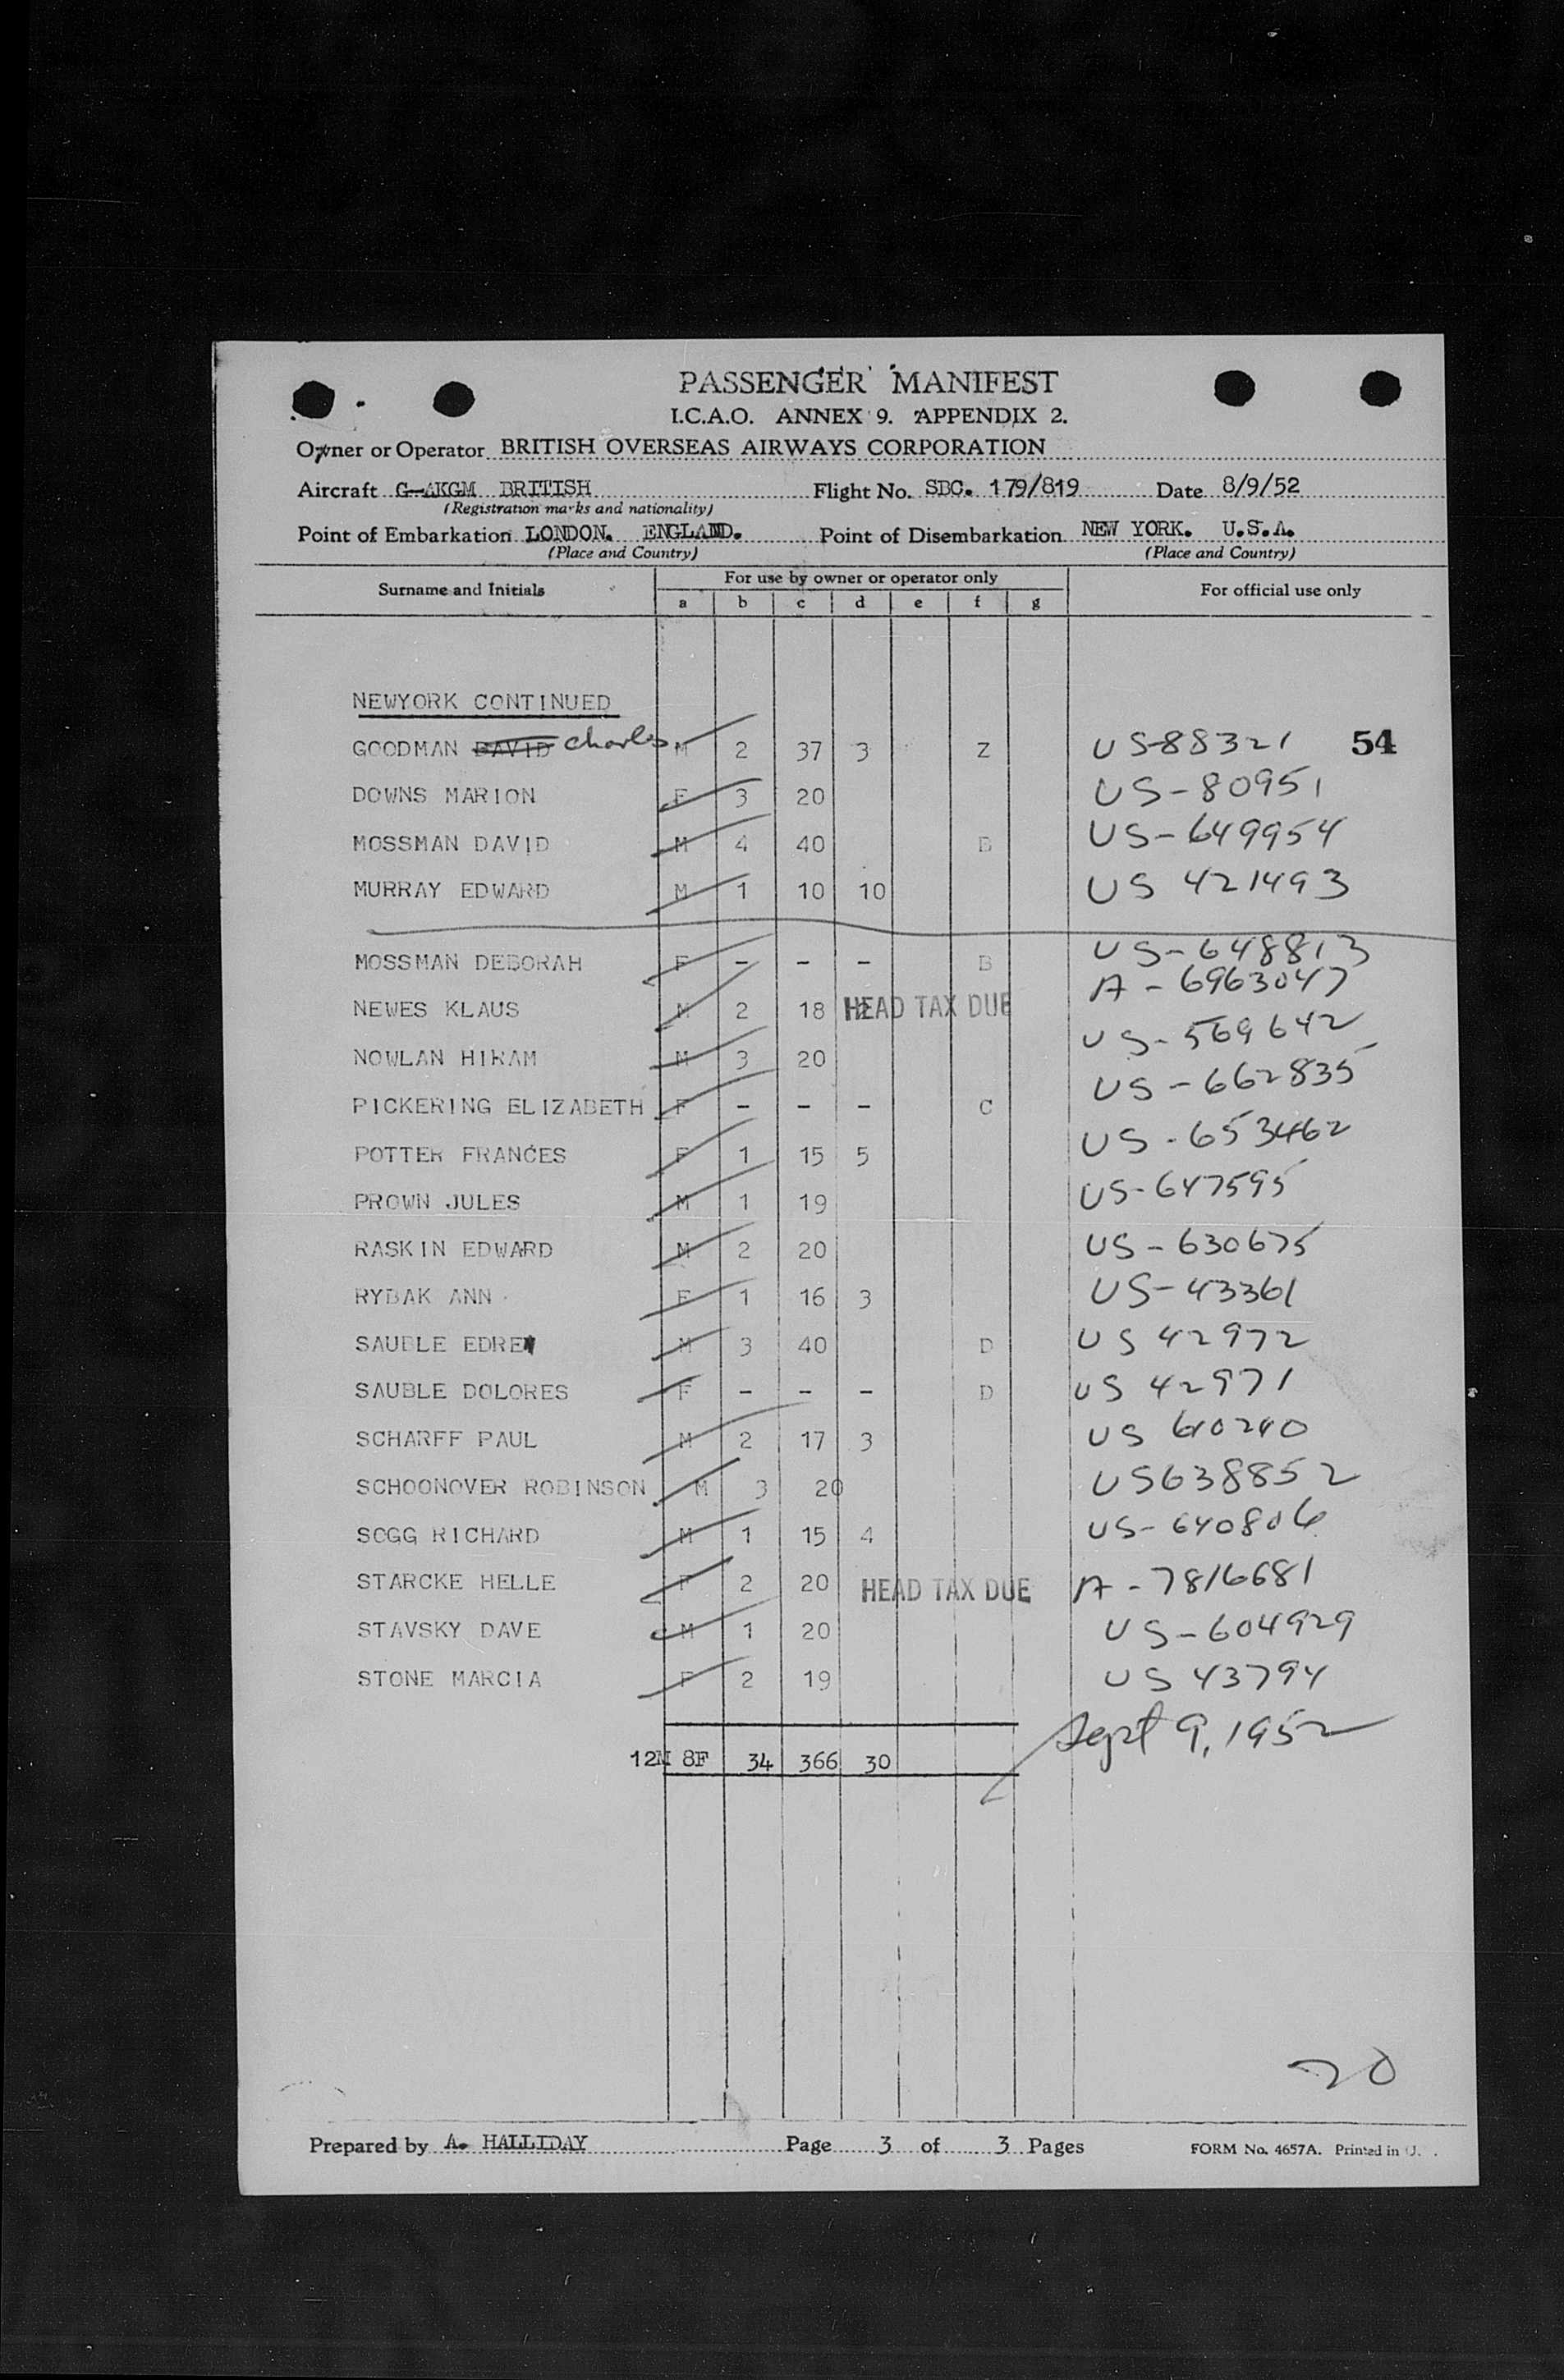 PASSENGER MANIFEST
I.C.A.O. ANNEX 9. APPENDIX 2.
Owner or Operator BRITISH OVERSEAS AIRWAYS CORPORATION
Aircraft G-AKGM BRITISH Flight No. SBC. 179/819 Date 8/9/52
(Registration marks and nationality)
Point of Embarkation LONDON. ENGLAND. Point of Disembarkation NEW YORK. U.S.A.
(Place and Country) (Place and Country)
Surname and Initials For use by owner or operator only For official use only
a b c d e f g
NEWYORK CONTINUED
GOODMAN DAVID Charles M 2 37 3 Z US-88321 54
DOWNS MARION F 3 20 US-80951
MOSSMAN DAVID M 4 40 B US-649954
MURRAY EDWARD M 1 10 10 US 421493
MOSSMAN DEBORAH F - - - B US-648813
NEWES KLAUS M 2 18 2 HEAD TAX DUE A-6963047
NOWLAN HIRAM M 3 20 US-569642
PICKERING ELIZABETH F - - - C US-662835
POTTER FRANCES F 1 15 5 US-653462
PROWN JULES M 1 19 US-647595
RASKIN EDWARD M 2 20 US-630675
RYBAK ANN F 1 16 3 US-43361
SAUBLE EDRE M 3 40 D US 42972
SAUBLE DOLORES F - - - D US 42971
SCHARFF PAUL M 2 17 3 US 640240
SCHOONOVER ROBINSON M 3 20 US638852
SOGG RICHARD M 1 15 4 US-640806
STARCKE HELLE F 2 20 HEAD TAX DUE A-7816681
STAVSKY DAVE M 1 20 US-604929
STONE MARCIA F 2 19 US 43794
Sept 9, 1952
12M 8F 34 366 30
20
Prepared by A. HALLIDAY Page 3 of 3 Pages FORM No. 4657A. Printed in